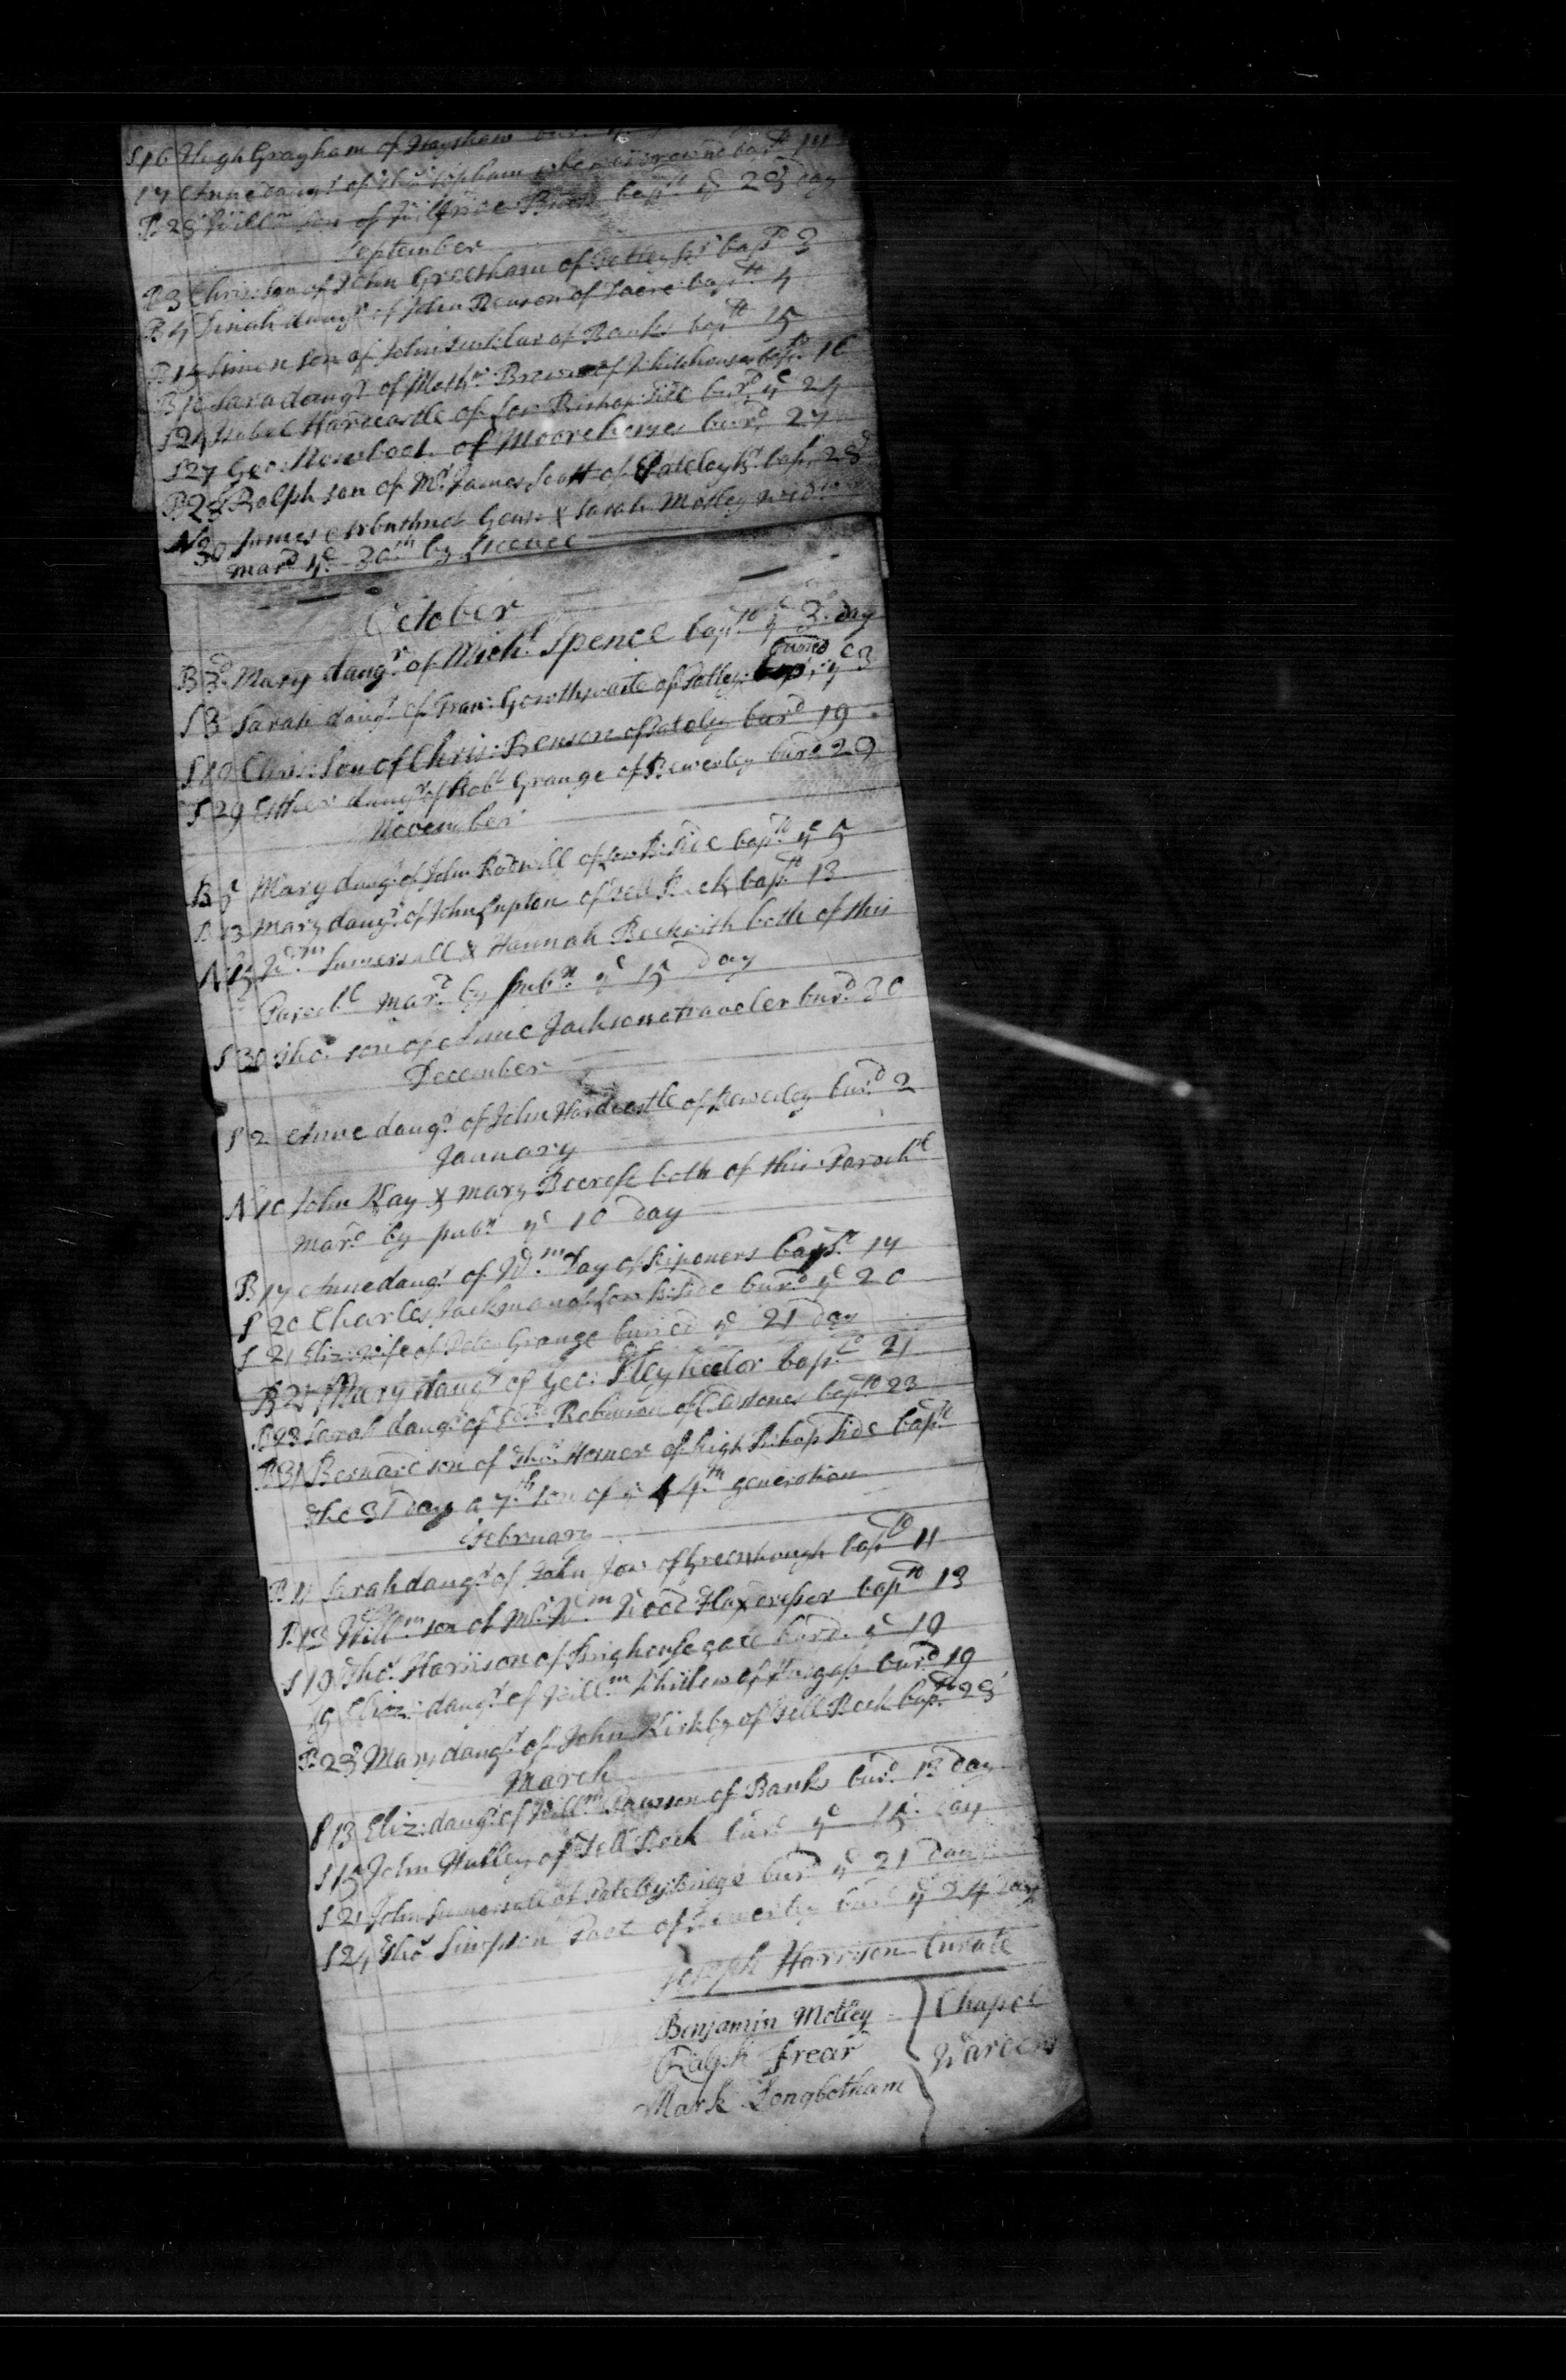 S 16 Hugh Grayham of Hayshaw bur
17 Anne daugr of Tho: Topham bapd 17
B 28 Willm son of Wilfride Brown bapd ye 28 day
September
B 3 Chris: son of John Greetham of bapd 3
B 4 Dinah daugr of John Benson of bapd 4
B 15 Simon son of John of Banks bapd 15
B 16 Sara daugr of Mathw Brown of Whitehouses bapd 16
S 24 Isabel Hardcastle of low Bishop side burd ye 24
S 27 Geo: Newboet of Moorehouses burd 27
B 28 Ralph son of Mr James Scott of Pateley bapd 28
N 30 James Arbuthnot Gent & Sarah Motley widw
mard ye 30th by licence
October
B 3d Mary daugr of Michl Spence bapd ye 3d day
S 3 Sarah daugr of Fran: Gowthwaite of Patley buried ye 3
S 19 Chris: son of Chris: Benson of Pateley burd 19
S 29 Esther daugr of Robt Grange of Bewerley burd 29
November
B 5 Mary daugr of John Rodwell of low B: side bapd ye 5
B 13 Mary daugr of John Lupton of Fell Beck bapd 13
N 15 Wm Sumersall & Hannah Beckwith both of this
Parochl mard by pubn ye 15 day
S 30 Tho: son of Anne Jackson a traveler burd 30
December
S 2 Anne daugr of John Hardcastle of Bewerley burd 2
January
N 10 John Kay & Mary Beecroft both of this Parochl
mard by pubn ye 10 day
B 14 Anne daugr of Wm Day of Riponers bapd 14
S 20 Charles Jackman of low B: side burd ye 20
S 21 Eliz: wife of Peter Grange buried ye 21 day
B 21 Mary daugr of Geo: bapd 21
B 23 Sarah daugr of Robinson of bapd 23
B 31 Bernard son of Tho: Horner of high Bishop side bapd
the 31 day a 7th son of ye 4th generation
February
B 11 Sarah daugr of John of Greenhough bapd 11
B 13 Willm son of Mr Wm Wood Flaxdresser bapd 13
S 19 Tho: Harrison of burd ye 19
19 Eliz: daugr of Willm of burd 19
B 28 Mary daugr of John Kirkby of Fell Beck bapd 28
March
S 13 Eliz: daugr of Willm Dawson of Banks burd 13 day
S 15 John Hulley of Fell Beck burd ye 15 day
S 21 John Sumersall of Pateley Brigs burd ye 21 day
S 24 Tho: Simpson Poor of Bewerley burd ye 24 day
Joseph Harrison Curate
Benjamin Motley
Ralph Frear
Mark Longbotham
Chapel
Wardens